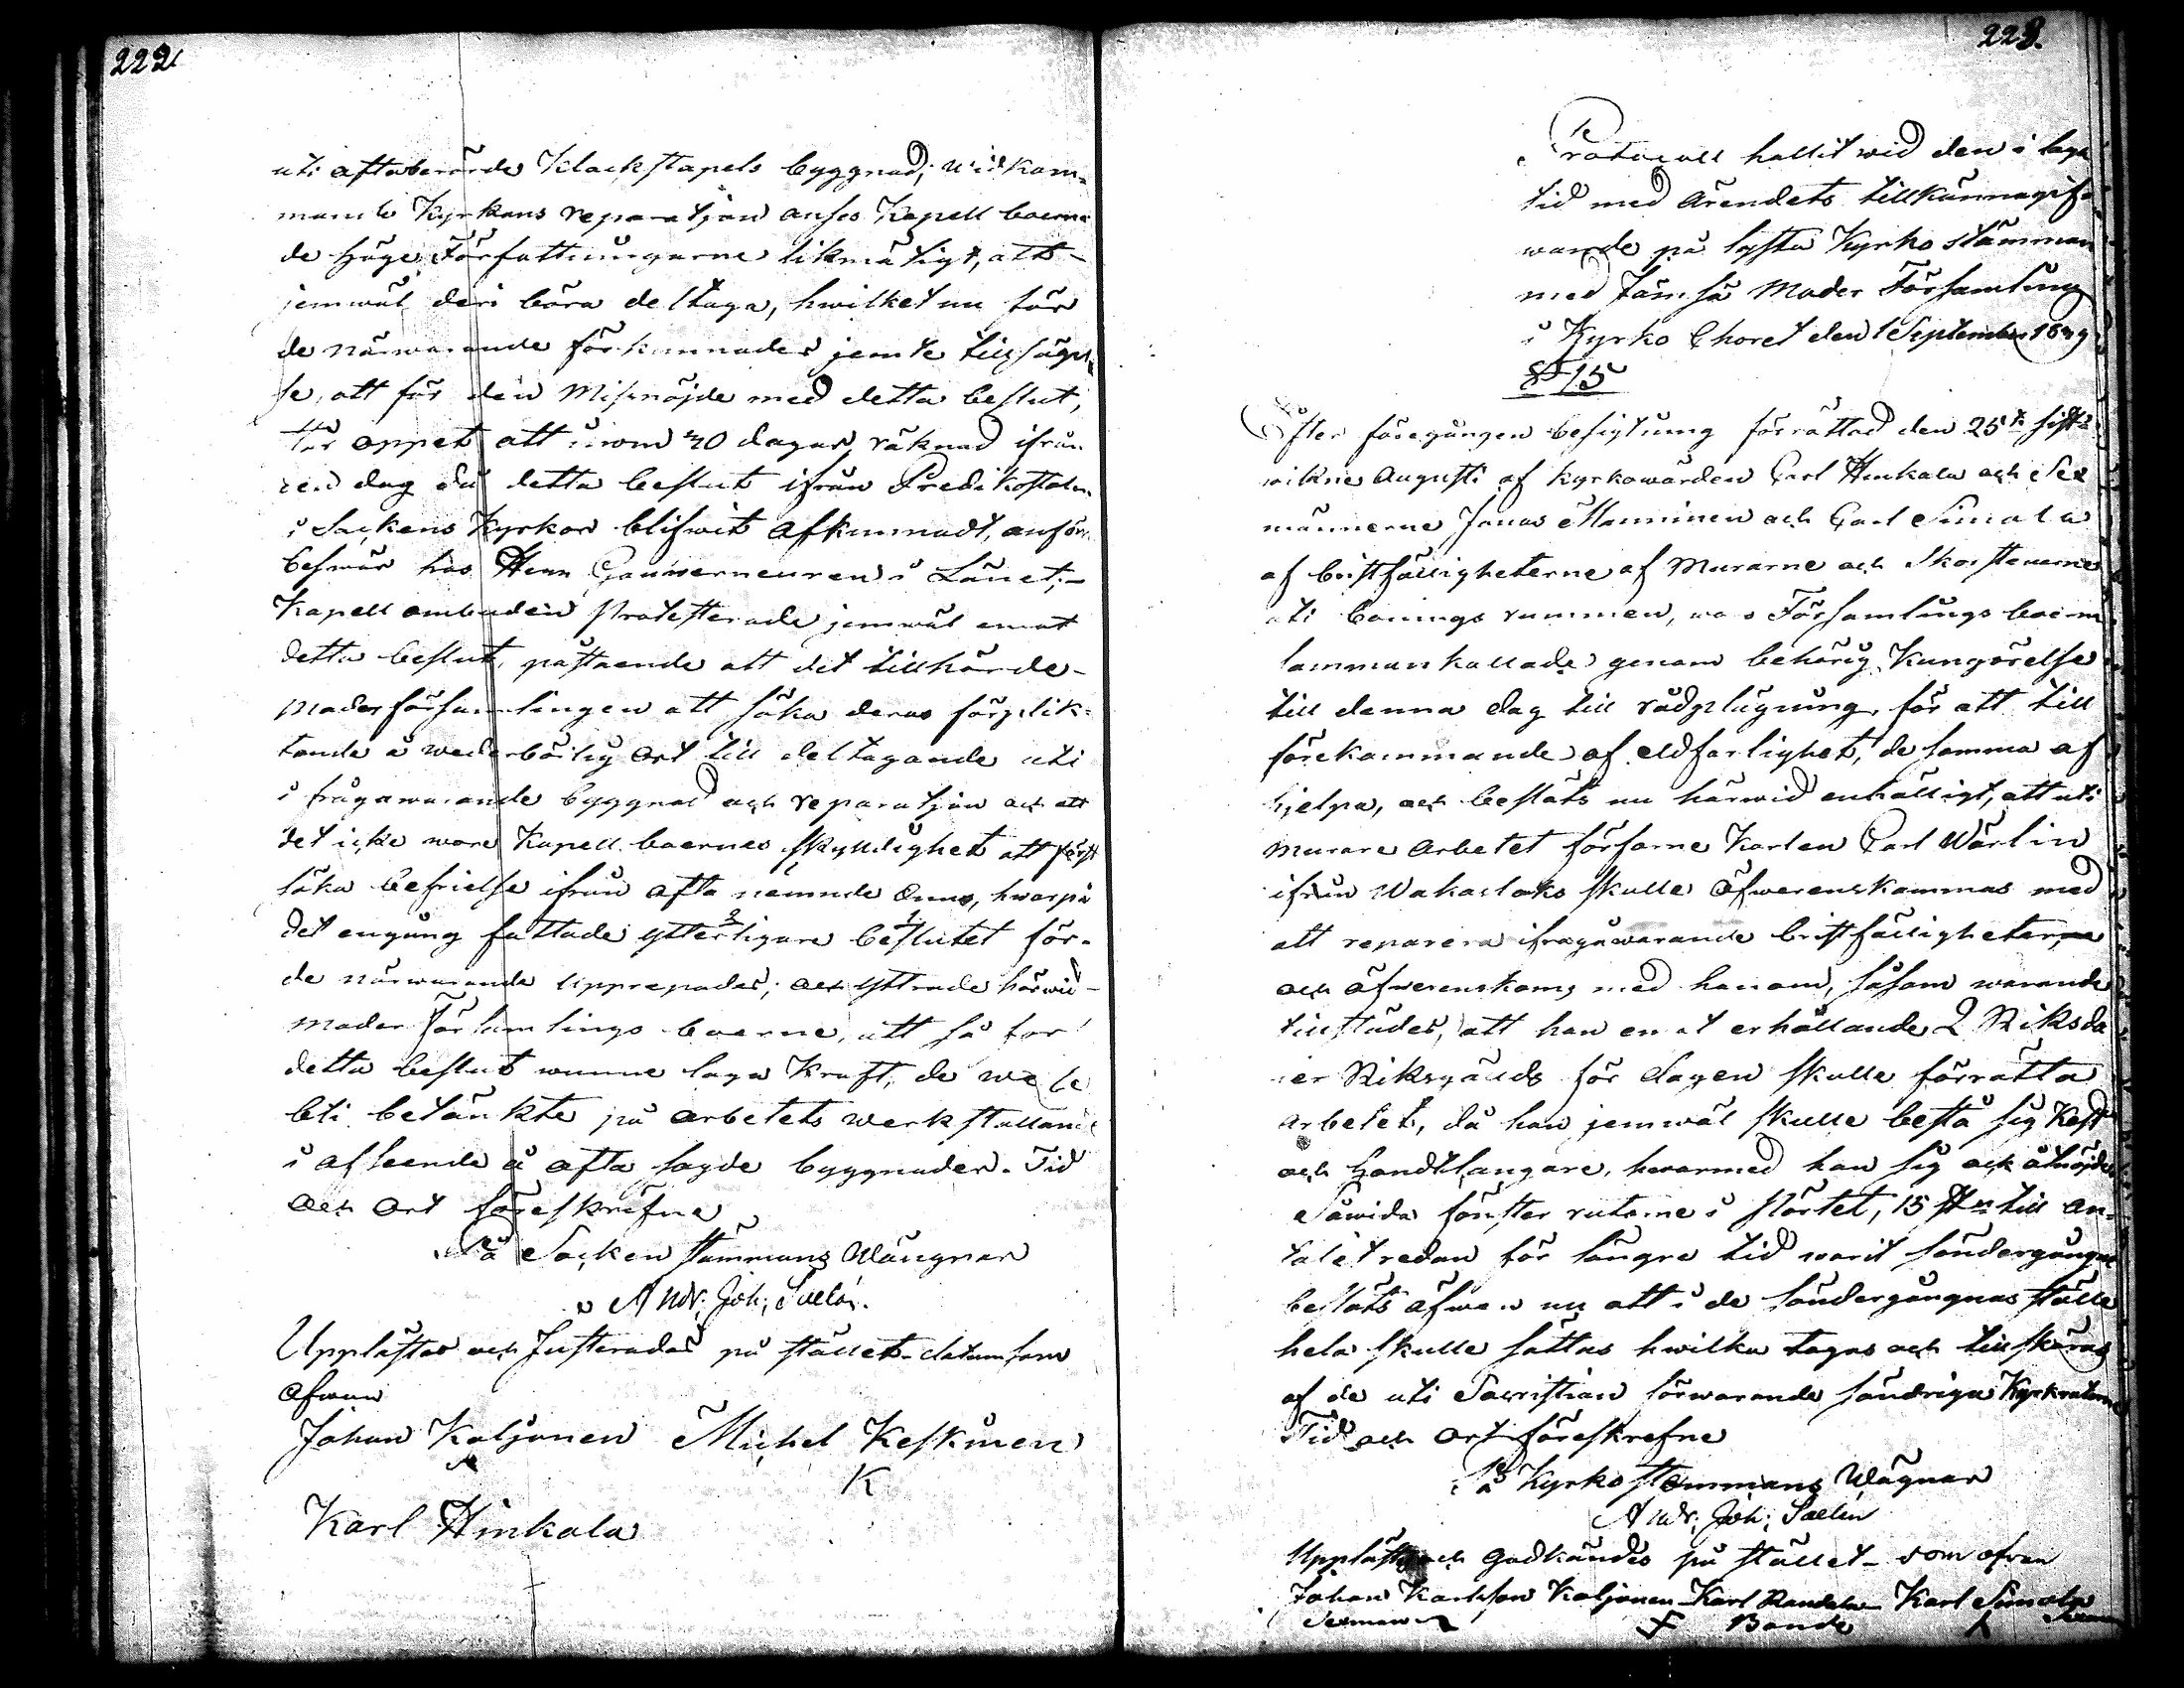 222
uti oftaberörde Klockstapels byggnad; widkom-
mande Kyrkans reparation anses Kapell boerne
de höge Författningarne likmätigt, att
jemwäl deri böra deltaga, hwilket nu för
de närwarande förkunnades jemte tillsägel-
se, att för den Missnöjde med detta beslut,
står öppet att inom 30 dagar räknad ifrån
den dag då detta beslut ifrån Predikostolen
i Sockens Kyrkor blifwit afkunnadt, anföra
beswär hos Herr Gouverneuren i Länet;
Kapell ombuden protesterade jemwäl emot
detta beslut, påstående att det tillhörde
Moderförsamlingen att söka deras förplik-
tande å wederbörlig ort till deltagande uti
i frågawarande byggnad och reparation och att
det icke wore Kapell boernes skyldighet att först
söka befrielse ifrån ofta nämnde Onus, hwarpå
det engång fattade ytterligare beslutet för
de närwarande upprepades; och yttrade härwid
Moder Församlings boerne, att så fort
detta beslut wunne laga Kraft, de wore
beti betänkte på arbetets werkställande
i afseende å ofta sagde byggnader. Tid
och ort föreskrifne
På Socken stämmans Wängnar
Andr: Joh: Sællin.
Upplästes och Justerades på stället datum som
ofwan
Johan Koljonen Michel Keskinen
K
Karl Hinkala
223.
Protocoll hållit wid den i laga
tid med ärendets tillkännagif-
wande på lyste Kyrko stämman
med Jämsä Moder Församling
i Kyrko Choret den 1 September 1839
§ 15
Efter föregången besigtning förrättad den 25te sist-
wikne Augusti af Kyrkowärden Carl Hinkala och Sex
männerne Jonas Manninen och Carl Simola
af bristfälligheterne af Murarne och Skorstenarne
uti bonings rummen, woro Församlings boerne
sammankallade genom behörig Kungörelse
till denna dag till rådplägning, för att till
förekommande af eldfarlighet, de samma af
hjelpa, och beslöts nu härwid enhälligt, att uti
murare arbetet förfarne Karlen Carl Wärlin
ifrån Wakarlaks skulle öfwerenskommas med
att reparera ifrågawarande bristfälligheterne
och öfwerenskoms med honom, såsom warande
tillstädes, att han emot erhållande 2 Riksda-
ler Riksgälds för dagen skulle förrätta
arbetet, då han jemwäl skulle bestå sig Kost
och Handtlangare, hwarmed han sig ock åtnöjde
Såwida fönster rutorne i Pörtet, 15 St till an-
talet redan för längre tid warit söndergångne
beslöts äfwen nu att i de söndergångnas ställe
hela skulle sättas hwilka tagas och tillskäras
af de uti Sacristian förwarande söndriga Kyrkrutorne
Tid och ort föreskrefne
På Kyrko stämmans Wägnar
Andr: Joh: Sællin
Upplästes och Godkändes på stället som ofwan
Johan Karlsson Koljonen Karl Randala Karl Simola
Sexman Bonde